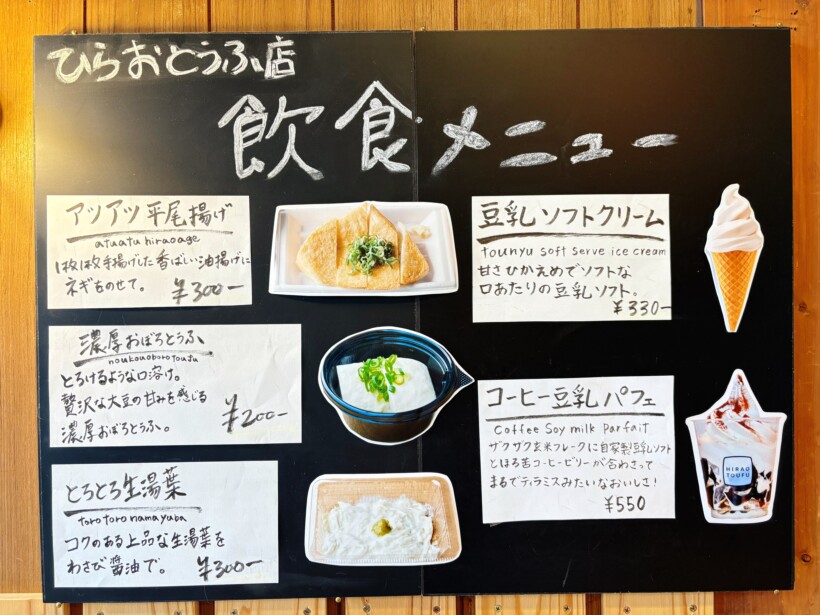 ひらおとうふ店
飲食メニュー
アツアツ平尾揚げ
atuatu hiraoage
1枚1枚手揚げした香ばしい油揚げに
ネギをのせて。 ¥300-
濃厚おぼろとうふ
noukouoboro toufu
とろけるような口溶け。
贅沢な大豆の甘みを感じる
濃厚おぼろとうふ。 ¥200-
とろとろ生湯葉
toro toro nama yuba
コクのある上品な生湯葉を
わさび醤油で。 ¥300-
豆乳ソフトクリーム
tounyu soft serve ice cream
甘さひかえめでソフトな
口あたりの豆乳ソフト。
¥330-
コーヒー豆乳パフェ
Coffee Soy milk Parfait
ザクザク玄米フレークに自家製豆乳ソフト
とほろ苦コーヒーゼリーが合わさって
まるでティラミスみたいなおいしさ!
¥550
HIRAO
TOUFU